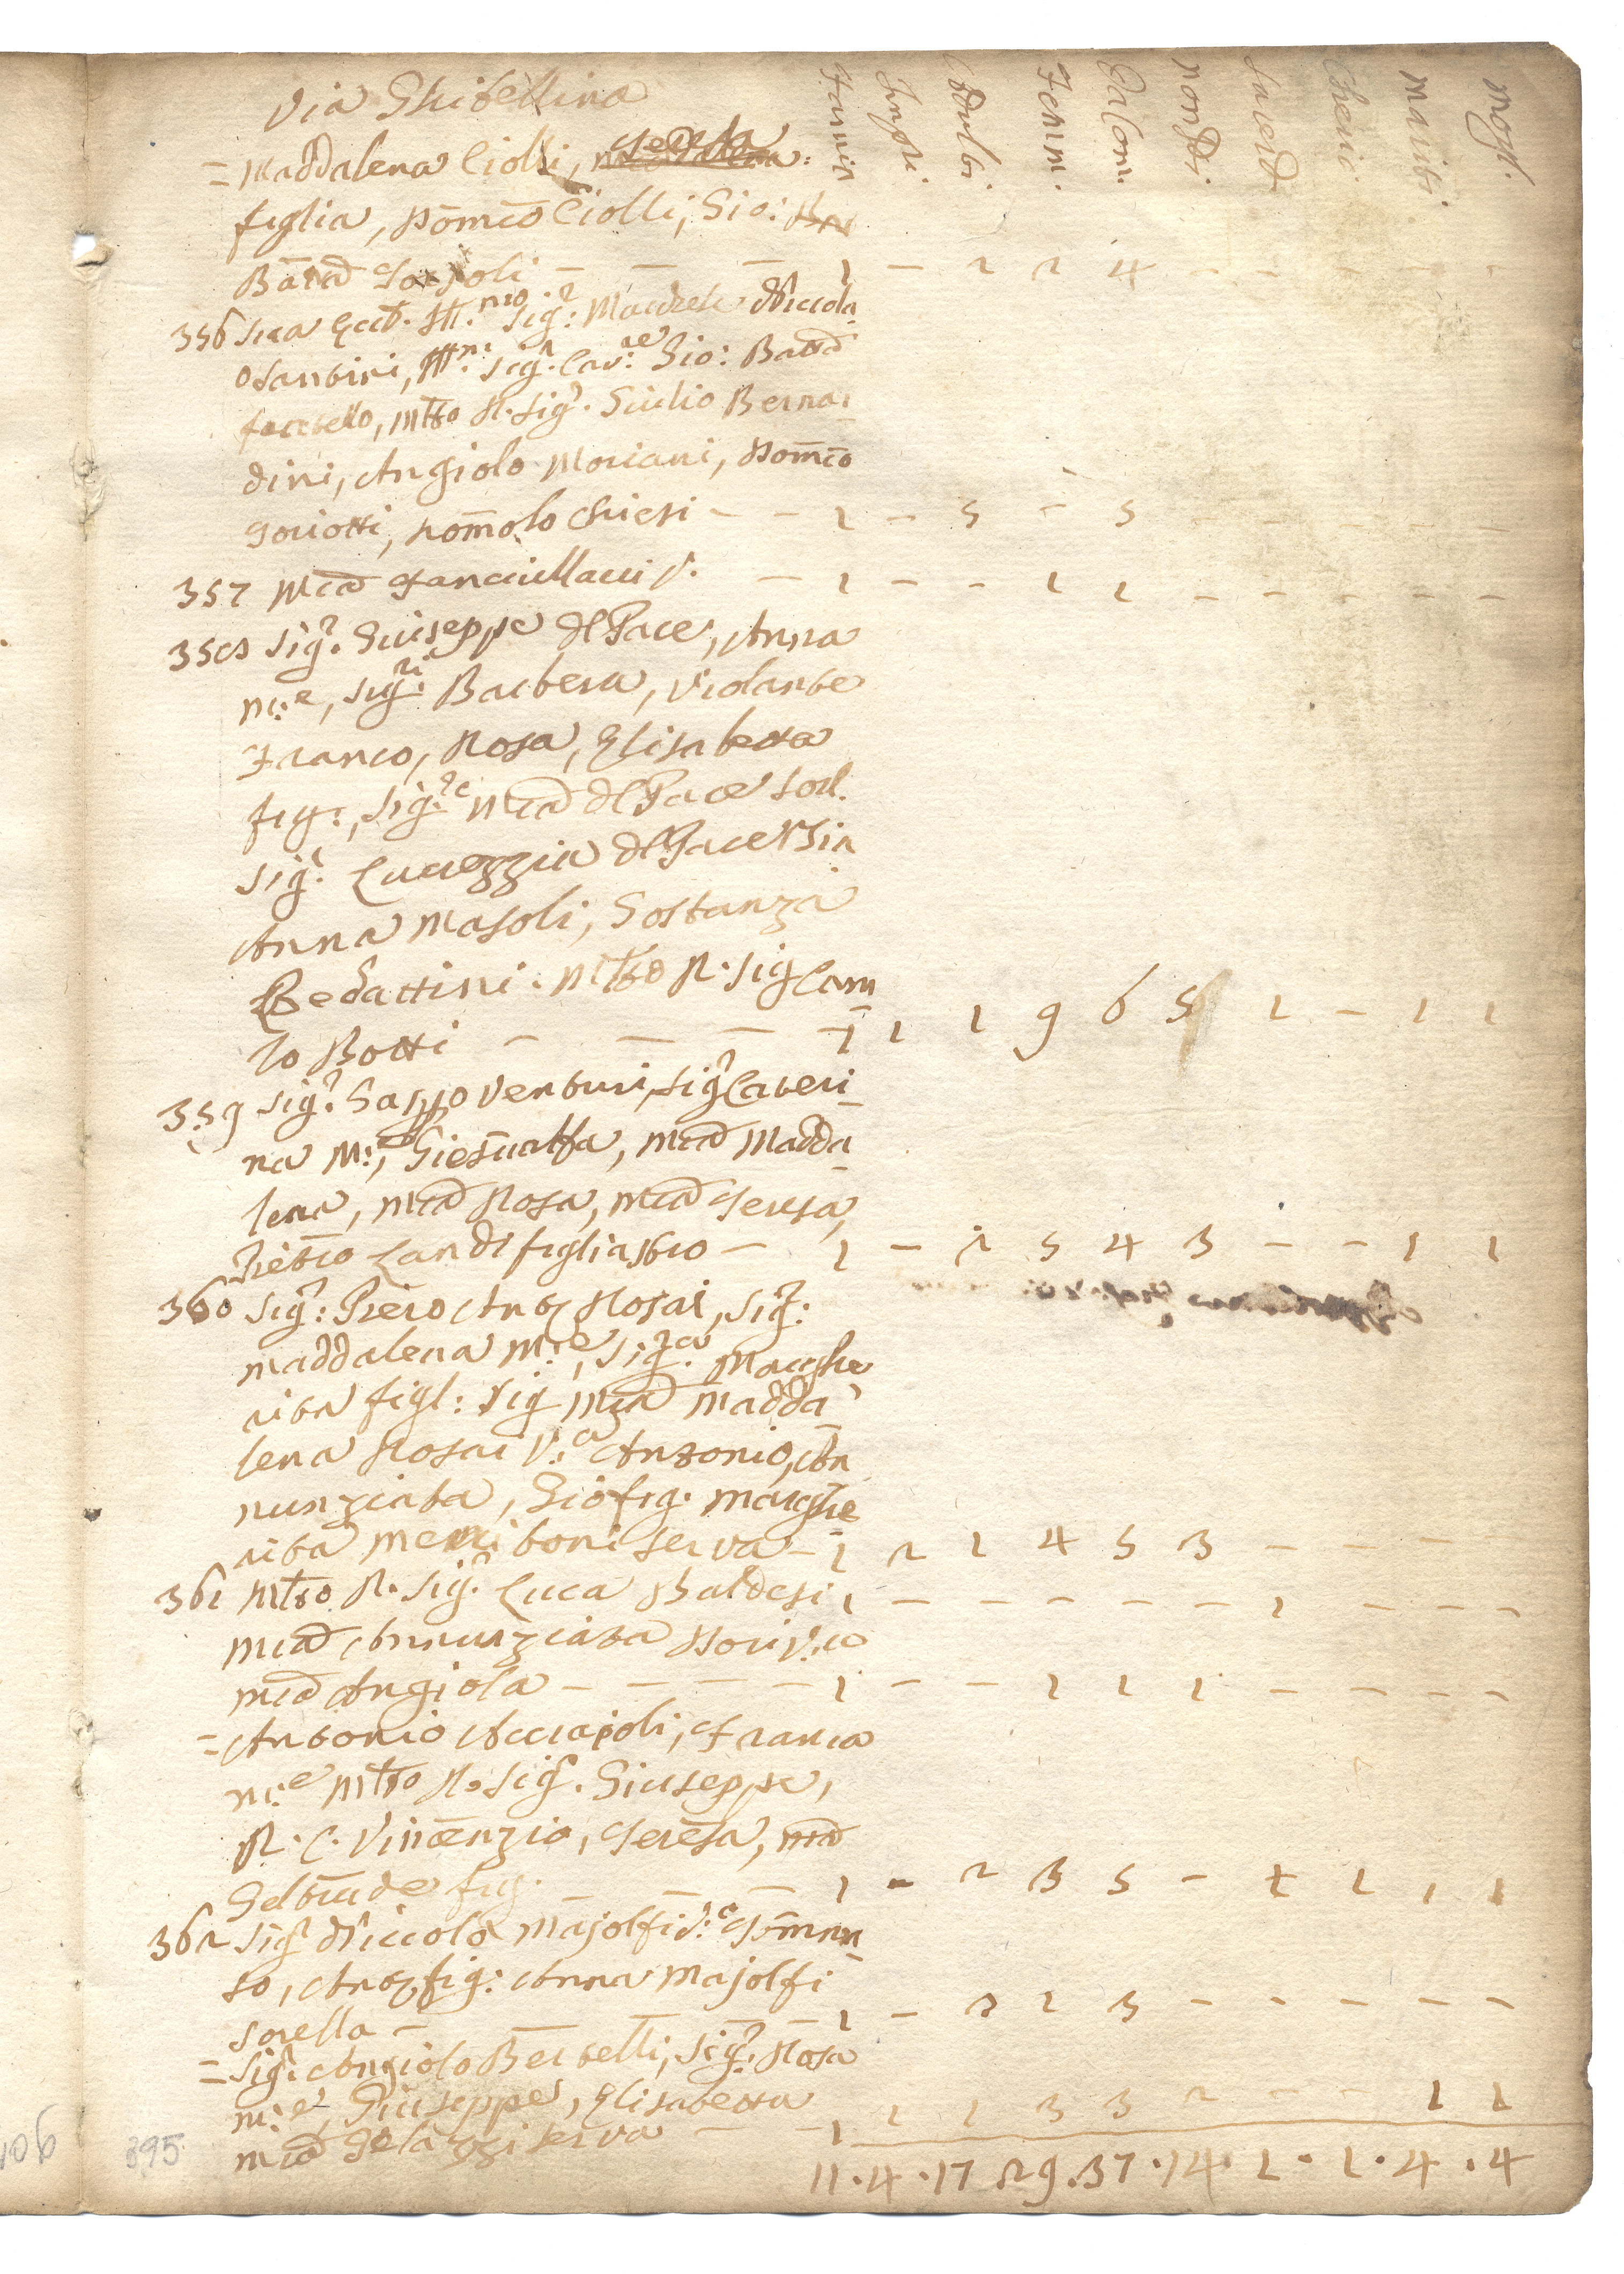 Via Ghibellina
Famia
Infor.
Adulti
Femm.
Da Com:
non Di
Sacerd
Cheric
Mariti
Mogl.
= Maddalena Ciolli,
figlia, Dom̄co Ciolli, Gio:
Batā - - - 1 - 2 2 4 - - - - - -
356 Sua Ecc. Ill.mo Sig: Niccola
Santini, Ill. Sig. Cav:re Gio: Battā
fratello, Mto R. Sig. Giulio Berna-
dini, Angiolo Moriani, Dom̄co
goriotti, Romolo Chiesi - - 1 - 5 - 5 - - - - - -
357 Mā Fanciullacci V. - 1 - - 1 1 - - - - - -
358 Sig. Giuseppe del Pace, Anna
m:e, Sig:ri Barbera, Violante
Franco, Rosa, Elisabetta
fig:, Sig:re Mā del Pace sorl.
Sig. Lucrezzia del Pace
Anna Masoli, Gostanza
Bedattini. Mto R. Sig Cam
lo Botti - - - 1 1 1 9 6 5 1 - 1 1
359 Sig. Gasppo Venturi, Sig Cateri-
na M:e, Giesualfa, Mā Madda-
lena, Mā Rosa, Mā Teresa,
Pietro Landi figliastro - 1 - 2 5 4 3 - - 1 1
360 Sig: Piero Anto Rosai, Sig:
Maddalena M:e, Sig:ra Marghe
rita figl: Sig Mā Madda
lena Rosai V:a Antonio, An
nunziata, Gio fig. Marghe
rita boni serva - 1 2 1 4 5 3 - - - -
361 Mto R. Sig. Luca Baldesi 1 - - - - - - 1 - - -
Mā Annunziata Dori V:a
Mā Angiola - - - - - 1 - - 1 1 1 - - - -
= Antonio Acciajoli, Franca
m:e Mto R. Sig. Giuseppe,
R. C. Vincenzio, Teresa, Mā
Geltrude fig. - - - 1 - 2 3 5 - 1 1 1 1
362 Sig Niccolo Majolfi V:o Tomma
so, Anto fig: Anna Majolfi
sorella - - - - 1 - 2 1 3 - - - - - -
= Sig. Angiolo Bertelli, Sig. Rosa
m:e Giuseppe, Elisabetta
Mā Gelazzi serva - - 1 1 1 3 3 2 - - 1 1
11 . 4 . 17 29 . 37 . 14 . 2 . 1 . 4 . 4
106
395